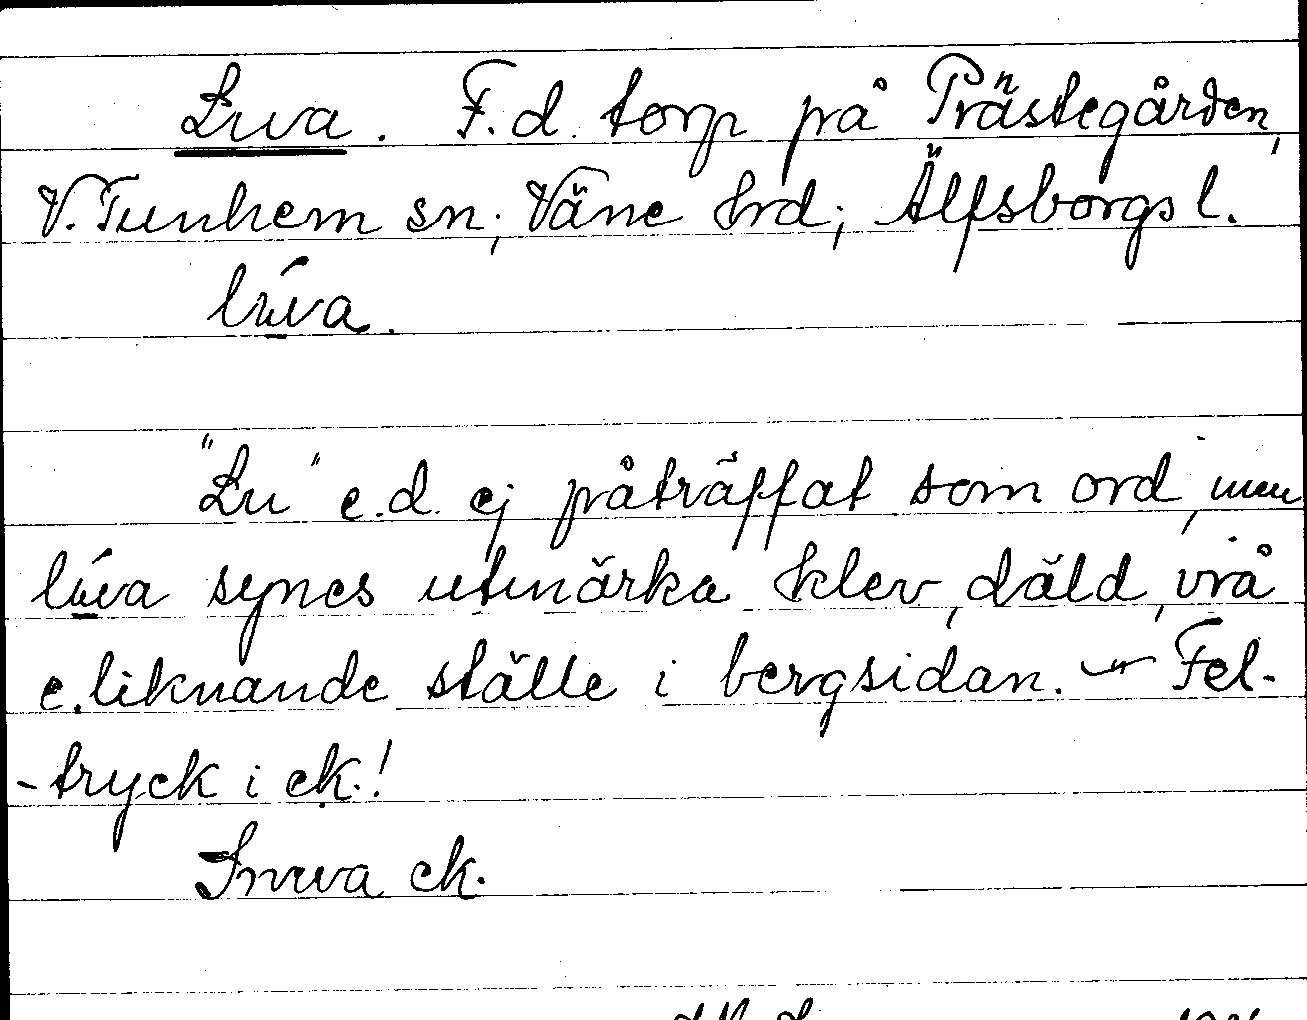 Luva. F.d. torp på Prästegården,
V. Tunhem sn; Väne hrd; Älfsborgs l.
lúva.
"Lu" e.d. ej påträffat som ord, men
lúva synes utmärka klev, däld, vrå
e. liknande ställe i bergsidan. Fel-
-tryck i ek.!
Snuva ek.